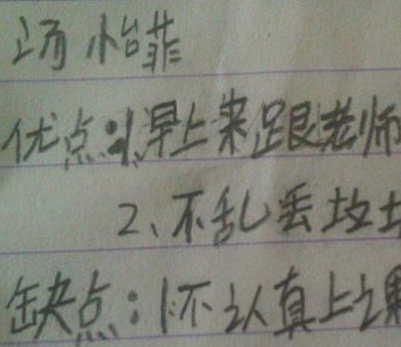 汤怡菲
优点:1、早上来跟老师
2、不乱丢垃
缺点:1、不认真上课